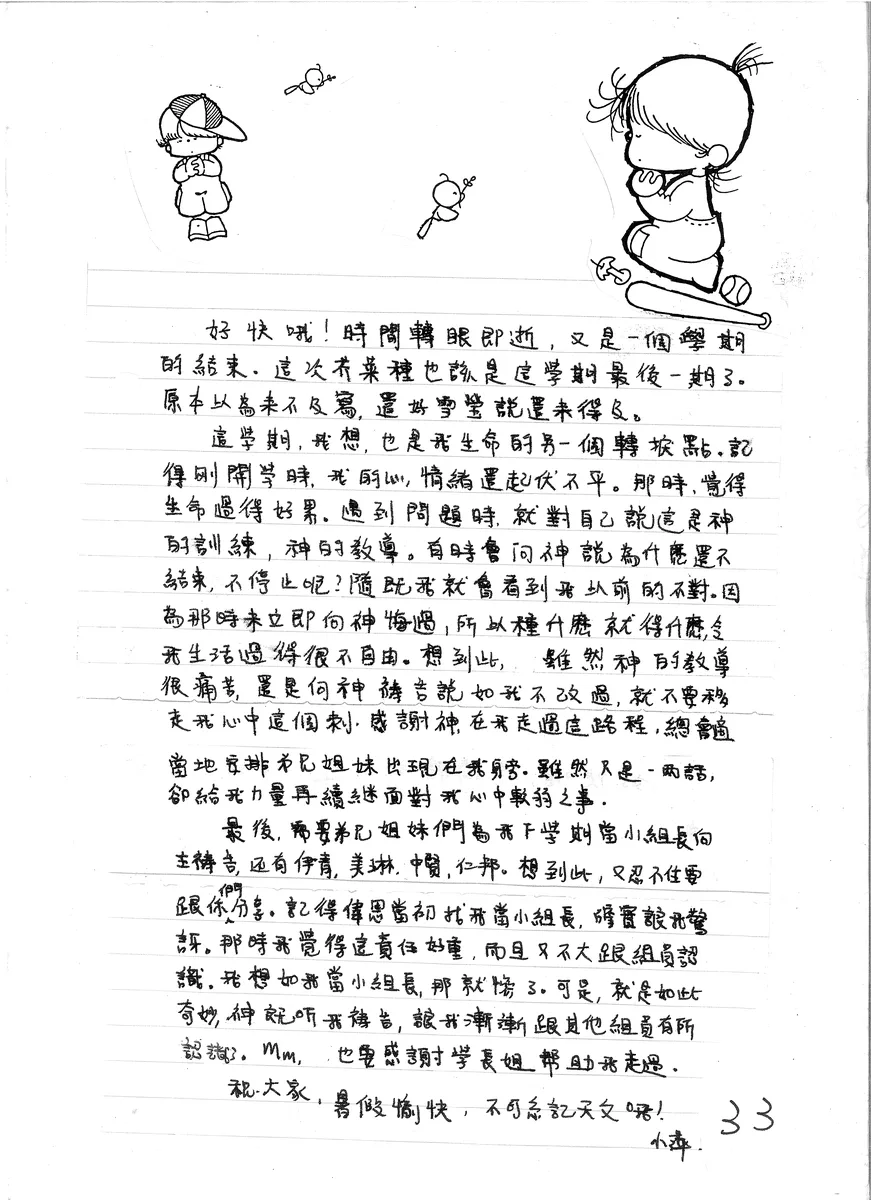 好快哦!時間轉眼即逝,又是一個學期
的結束。這次芥菜種也該是這學期最後一期了。
原本以為來不及寫,還好雪瑩說還來得及。
這學期,我想,也是我生命的另一個轉捩點。記
得剛開學時,我的心,情緒還起伏不平。那時,覺得
生命過得好累。遇到問題時,就對自己說這是神
的訓練,神的教導。有時會向神說為什麼還不
結束,不停止呢?隨既我就會看到我以前的不對。因
為那時未立即向神悔過,所以種什麼就得什麼,令
我生活過得很不自由。想到此, 雖然神的教導
很痛苦,還是向神禱告說如我不改過,就不要移
走我心中這個刺.感謝神,在我走過這路程,總會適
當地安排弟兄姐妹出現在我身旁。雖然只是一兩話,
卻給我力量再續繼面對我心中軟弱之事.
最後,需要弟兄姐妹們為我下學期當小組長向
主禱告,还有伊青,美琳.中賢,仁邦。想到此,又忍不住要
跟你們分享。記得偉恩當初找我當小組長,確實讓我驚
訝。那時我覺得這責任好重,而且又不大跟組員認
識.我想如我當小組長,那就慘了。可是,就是如此
奇妙,神就听我禱告,讓我漸漸跟其他組員有所
認識了。Mm, 也要感謝學長姐幫助我走過.
祝.大家,暑假愉快,不可忘記天文唔!
小萍.
33